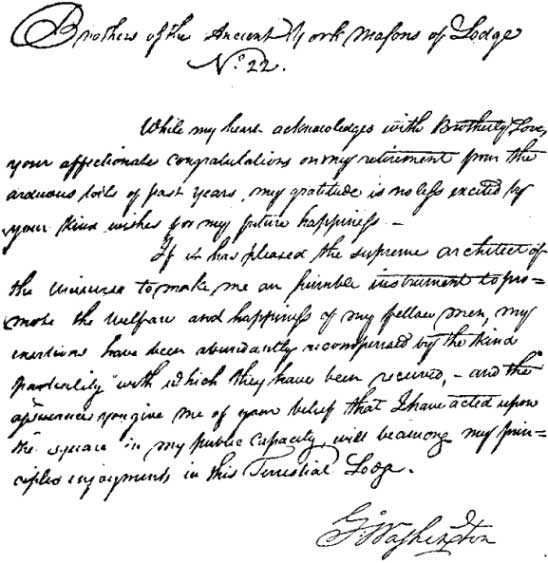 Brothers of the Ancient York Masons of Lodge
No. 22.
While my heart acknowledges with Brotherly Love,
your affectionate congratulations on my retirement from the
arduous toils of past years, my gratitude is no less excited by
your kind wishes for my future happiness. –
If it has pleased the supreme architect of
the Universe to make me an humble instrument to pro=
mote the welfare and happiness of my fellow men, my
exertions have been abundantly recompensed by the kind
partiality with which they have been received, – and the
assurances you give me of your belief that I have acted upon
the square in my public capacity, will be among my prin=
ciples enjoyments in this Terrestial Lodge.
G:Washington